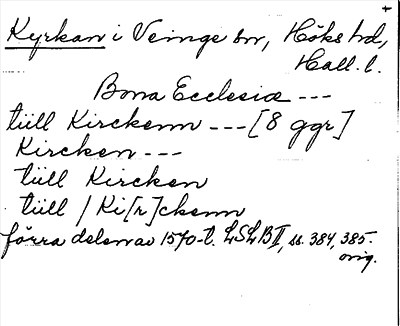 +
Kyrkan i Veinge sn, Höks hd,
Hall. l.
Bona Ecclesiæ ---
tüll Kirckenn --- [8 ggr]
Kircken ---
tüll Kircken
tüll / Ki[r]ckenn
förra delen av 1570-t. LSLB II, ss. 384, 385.
orig.